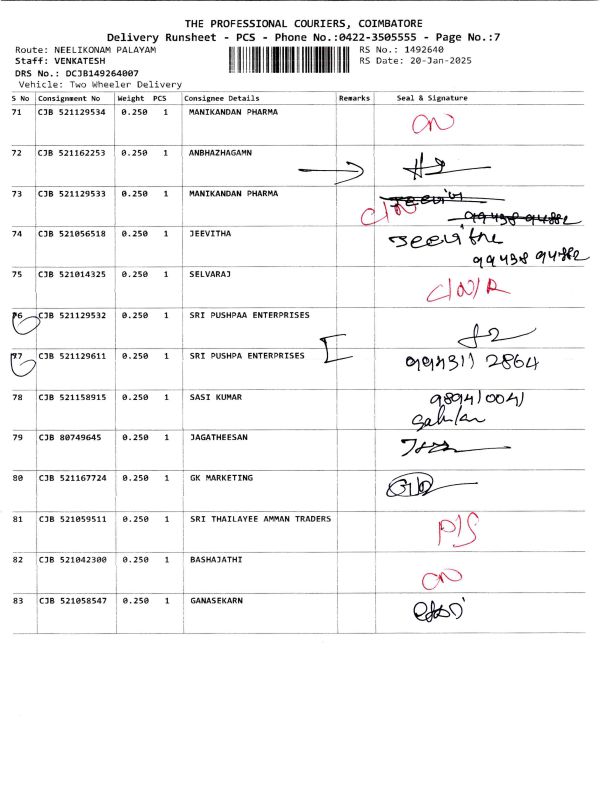 THE PROFESSIONAL COURIERS, COIMBATORE
Delivery Runsheet - PCS - Phone No.:0422-3505555 - Page No.:7
Route: NEELIKONAM PALAYAM RS No.: 1492640
Staff: VENKATESH RS Date: 20-Jan-2025
DRS No.: DCJB149264007
Vehicle: Two Wheeler Delivery
S No Consignment No Weight PCS Consignee Details Remarks Seal & Signature
71 CJB 521129534 0.250 1 MANIKANDAN PHARMA
72 CJB 521162253 0.250 1 ANBHAZHAGAMN
73 CJB 521129533 0.250 1 MANIKANDAN PHARMA C/N
74 CJB 521056518 0.250 1 JEEVITHA Jeevitha
75 CJB 521014325 0.250 1 SELVARAJ C/N/R
76 CJB 521129532 0.250 1 SRI PUSHPAA ENTERPRISES
77 CJB 521129611 0.250 1 SRI PUSHPA ENTERPRISES
78 CJB 521158915 0.250 1 SASI KUMAR
79 CJB 80749645 0.250 1 JAGATHEESAN
80 CJB 521167724 0.250 1 GK MARKETING
81 CJB 521059511 0.250 1 SRI THAILAYEE AMMAN TRADERS P/S
82 CJB 521042300 0.250 1 BASHAJATHI
83 CJB 521058547 0.250 1 GANASEKARN